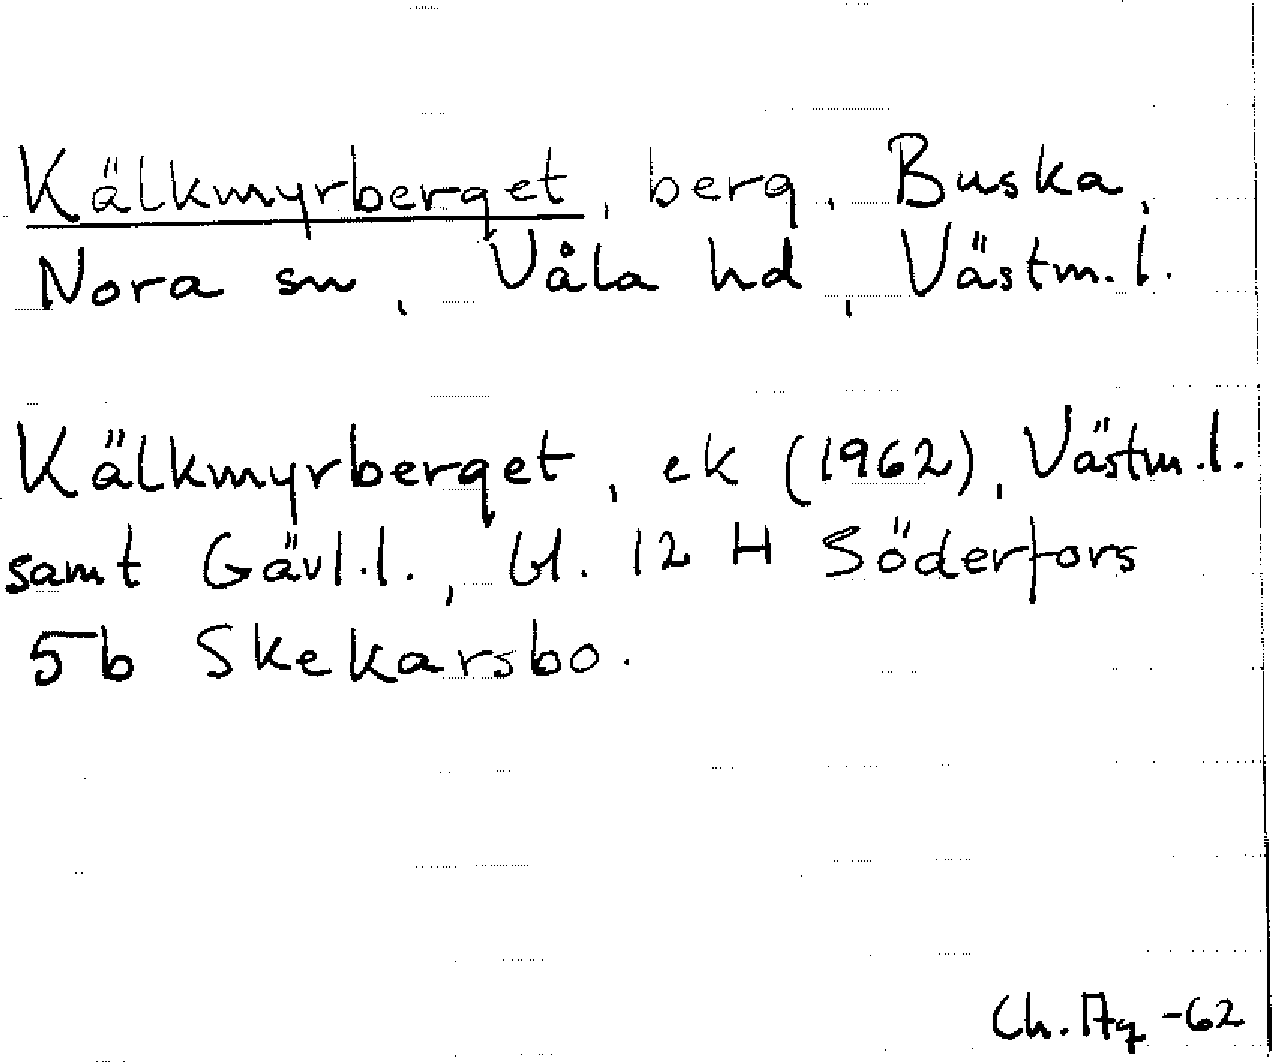 Kälkmyrberget, berg, Buska,
Nora sn, Våla hd, Västm.l.
Kälkmyrberget, ek (1962), Västm.l.
samt Gävl.l., bl. 12 H Söderfors
5b Skekarsbo.
Ch. Ag -62